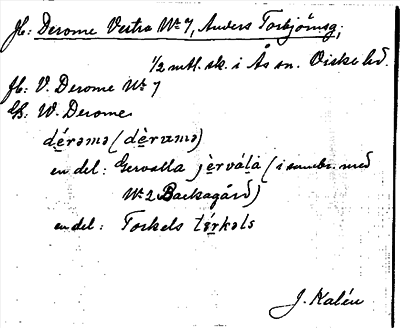 Jb: Derome Vestra No 7, Anders Torbjörnsg,
1/2 mtl. sk. i Ås sn. Viske hd.
Jb: V. Derome No 7
Gk: W. Derome
dérəmə (dèrɐmə)
en del: Gervalla jèrválà (i sambr. med
No 2 Backagård)
en del: Torkels térkəls
J. Kalén